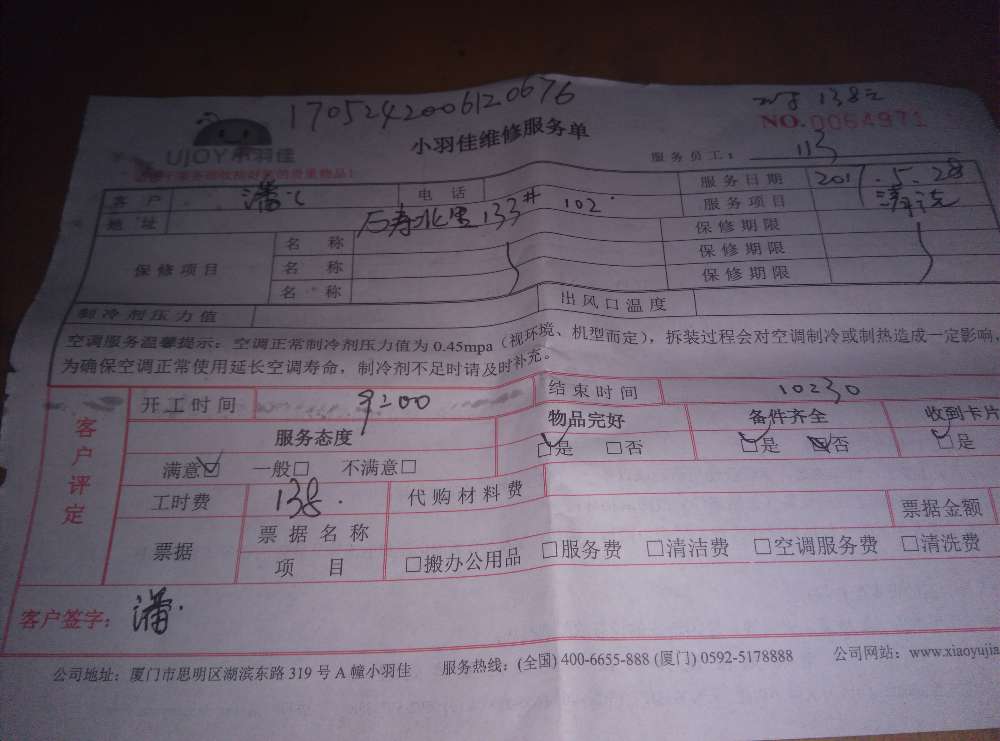 170524200612.0676
138元
小羽佳维修服务单
NO.0064971
UJOY小羽佳
服务员工： 113
客户 潘 电话 服务日期 2017.5.28
地址 后寿北里133# 102 服务项目 清洗
保修项目 名称 保修期限
名称 保修期限
名称 保修期限
制冷剂压力值 出风口温度
空调服务温馨提示：空调正常制冷剂压力值为0.45mpa（视环境、机型而定），拆装过程会对空调制冷或制热造成一定影响，
为确保空调正常使用延长空调寿命，制冷剂不足时请及时补充。
客户评定
开工时间 9:00 结束时间 10:30
服务态度 物品完好 备件齐全 收到卡片
满意☑ 一般□ 不满意□ ☑是 □否 ☑是 ☑否 ☑是
工时费 138. 代购材料费
票据 票据名称 票据金额
项目 □搬办公用品 □服务费 □清洁费 □空调服务费 □清洗费
客户签字： 潘
公司地址：厦门市思明区湖滨东路319号A幢小羽佳 服务热线：(全国) 400-6655-888 (厦门) 0592-5178888 公司网站：www.xiaoyujia